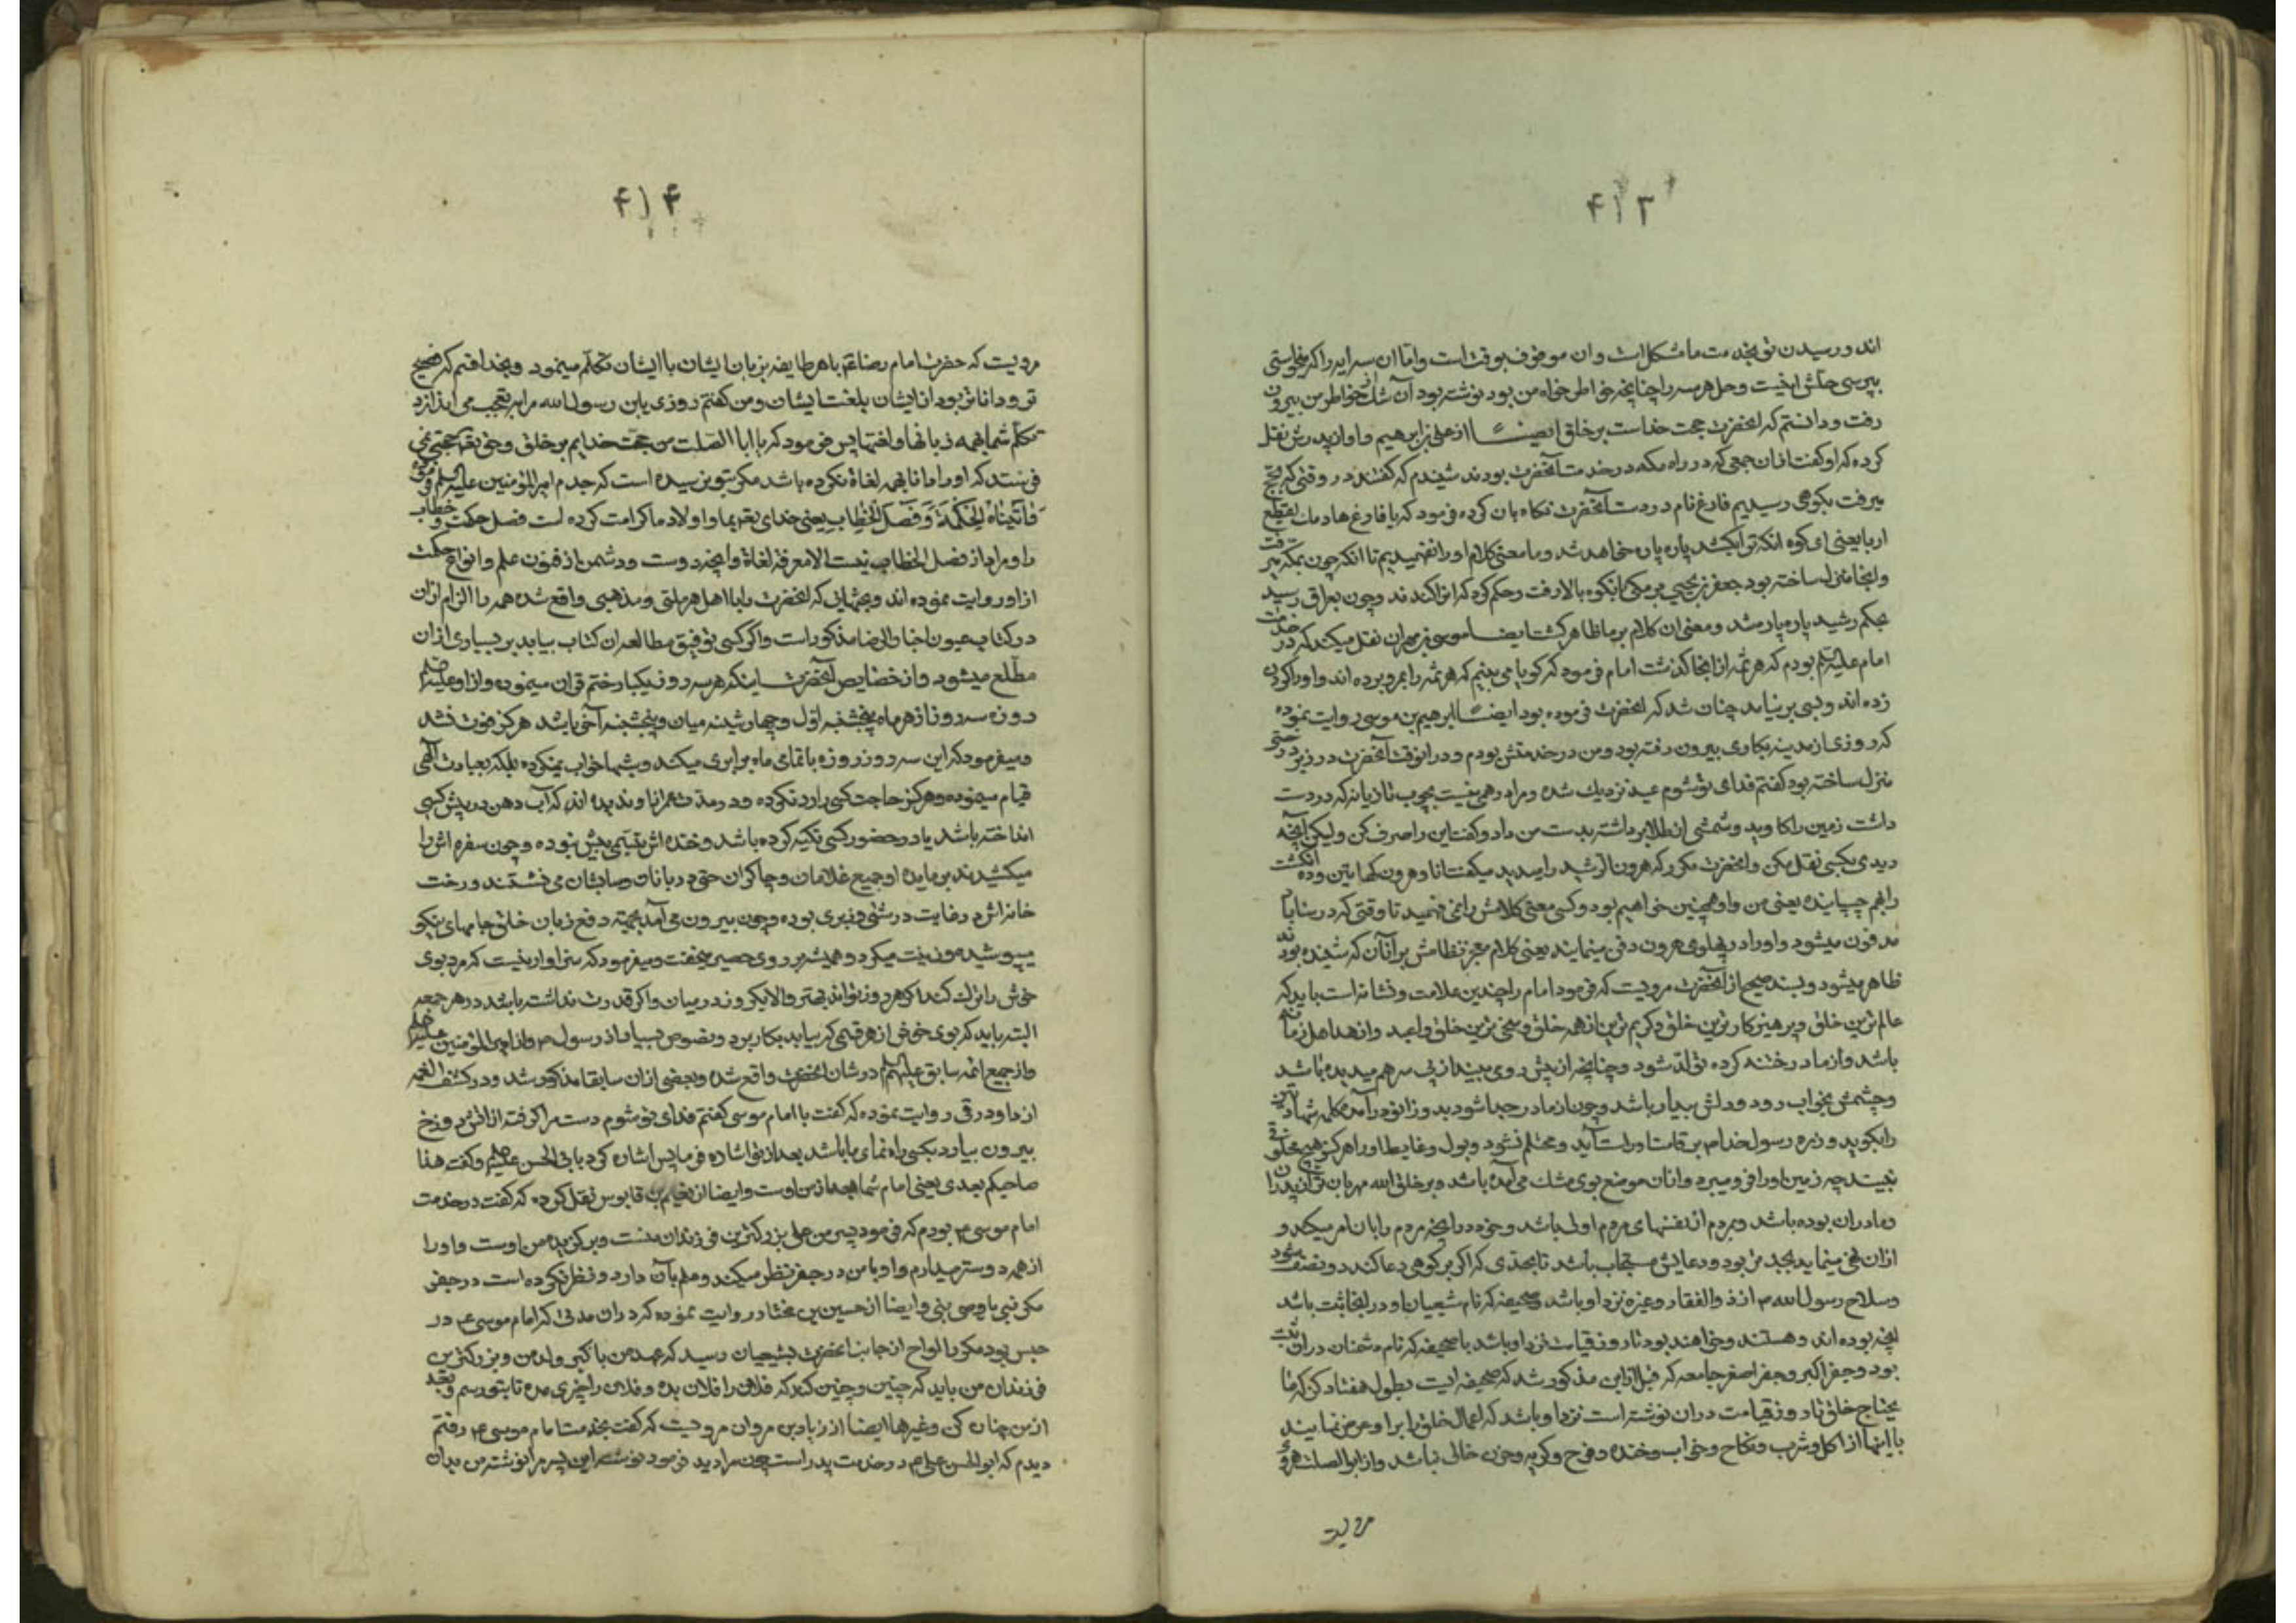 ۴۱۳
اند و رسیدن تو بخدمت ما مشکل است و ان موقوف بوقت است و اما ان سه ایه را اگر میخواستی
بپرسی جایش اینست و حل هر سه را چنانچه خواطر خواه من بود نوشته بود آن شک از خواطر من بیرون
رفت و دانستم که انحضرت حجت خداست بر خلق ایضا از علی بن ابرهیم و او از پدرش نقل
کرده که او گفت از ان جمعی که در راه مکه در خدمت آنحضرت بودند شنیدم که گفتند در وقتی که بحج
میرفت بکوهی رسیدیم فارغ نام در دست آنحضرت نگاه بان کرده فرمود که یا فارغ هادمك یقطع
اربا یعنی ای کوه انکه ترا بکشد پاره پاره خواهد شد و ما معنی کلام او را نفهمیدیم تا انکه چون بمکه میرفت
و انجا منزل ساخته بود جعفر بن یحیی برمکی بانکوه بالا رفت و حکم کرد که انرا کندند و چون بعراق رسید
بحکم رشید پاره پاره شد و معنی ان کلام بر ما ظاهر گشت ایضا موسی بن مهران نقل میکند که در خدمت
امام علیه السلم بودم که هرثمه از انجا گذشت امام فرمود که گویا می بینم که هرثمه را بمرو برده اند و او را گردن
زده اند و بسی بر نیامد چنان شد که انحضرت فرموده بود ایضا ابرهیم بن موسی روایت نموده
که روزی از مدینه بکاری بیرون رفته بود و من در خدمتش بودم و در انوقت آنحضرت در زیر درختی
منزل ساخته بود گفتم فدای تو شوم عید نزدیك شده و مرا درهمی نیست بچوب تازیانه که در دست
داشت زمین را کاوید و شمشی از طلا برداشته بدست من داد و گفت این را صرف کن و لیکن آنچه
دیدی بکسی نقل مکن و انحضرت مکرر که هرون الرشید را میدید میگفت انا و هرون کهاتین و دو انگشت
را بهم چسبانیده یعنی من و او همچنین خواهیم بود و کسی معنی کلامش را نمی فهمید تا وقتی که در سناباد
مدفون میشود و او را در پهلوی هرون دفن مینمایند یعنی کلام معجز نظامش بر آنان که شنیده بودند
ظاهر میشود و بسند صحیح از آنحضرت مرویست که فرمود امام را چندین علامت و نشانه است باید که
عالم ترین خلق و پرهیزکارترین خلق و کریم ترین از همه خلق و سخی ترین خلق و اعبد و ازهد اهل زمانه
باشد و از مادر ختنه کرده تولد شود و چنانچه از پیش روی بیند از پی سر هم میدیده باشد
و چشمش بخواب رود و دلش بیدار باشد و چون از مادر جدا شود بدو زانو درآمده کلمه شهادتین
را بگوید و زره رسول خدا ص بر قامت او راست آید و محتلم نشود و بول و غایط او را هرگز هیچ مخلوقی
نبیند چه زمین او را فرو میبرد و از ان موضع بوی مشك می آمده باشد و بر خلق الله مهربان تر از پدران
و مادران بوده باشد و بمردم از نفسهای مردم اولی باشد و خود در انچه مردم را بان امر میکند و
ازان نهی مینماید بجد تر بود و دعایش مستجاب باشد تا بحدی که اگر بر کوهی دعا کند دو نصف شود
و سلاح رسول الله ص از ذوالفقار و غیره نزد او باشد و صحیفه که نام شیعیان او در انجا ثبت باشد
انچه بوده اند و هستند و خواهند بود تا روز قیامت نزد او باشد با صحیفه که نام دشمنان در ان ثبت
بود و جفر اکبر و جفر اصغر و جامعه که قبل ازین مذکور شد که صحیفه ایست بطول هفتاد کز که ما
یحتاج خلق تا روز قیامت در ان نوشته است نزد او باشد که اعمال خلق را بر او عرض نمایند
با اینها از اکل و شرب و نکاح و خواب و خنده و فرح و گریه و حزن خالی نباشد و از ابو الصلت هروی
مرویت
۴۱۴
مرویت که حضرت امام رضا ع با هر طایفه بزبان ایشان با ایشان تکلم مینمود و بخدا قسم که فصیح
تر و داناتر بود از ایشان بلغت ایشان و من گفتم روزی یابن رسول الله مرا بتعجب می اندازد
تکلم شما بهمه زبانها و لغتها پس فرمود که یا ابا الصلت من حجت خدایم بر خلق و حق تع حجتی نمی
فرستد که او را دانا بهمه لغاة نکرده باشد مکر بتو نرسیده است که جدم امیر المؤمنین علیه السلم فرموده
فآتیناه الحکمة و فصل الخطاب یعنی خدای تع بما و اولاد ما کرامت کرده است فضل حکمت و خطاب
را و مراد از فصل الخطاب نیست الا معرفة لغاة و انچه دوست و دشمن از فنون علم و انواع حکمت
از او روایت نموده اند و بحثهایی که انحضرت را با اهل هر ملتی و مذهبی واقع شده همه را الزام ازان
در کتاب عیون اخبار الرضا مذکور است و اگر کسی توفیق مطالعه ان کتاب بیابد بر بسیاری ازان
مطلع میشود و از خصایص آنحضرت اینکه هر سه روز یکبار ختم قران مینموده و از او علیه السلم
روزه سه روز از هر ماه پنجشنبه اول و چهارشنبه میان و پنجشنبه آخر باشد هرگز فوت نشد
و میفرمود که این سه روز روزه با تمامی ماه برابری میکند و شبها خواب نمیکرده بلکه بعبادت الهی
قیام مینموده و هرگز حاجت کسی را رد نکرده و در مدت عمر انا و ندیده اند که آب دهن در پیش کسی
انداخته باشد یا در حضور کسی تکیه کرده باشد و خنده اش تبسمی بیش نبوده و چون سفره اش را
میکشیدند بر مایده او جمیع غلامان و چاکران حتی دربانان و سایسان می نشستند و رخت
خانه اش در غایت درشتی و زبری بوده و چون بیرون می آمد بجهته دفع زبان خلق جامهای نیکو
میپوشیده و زینت میکرد و همیشه بر روی حصیر میخفت و میفرمود که سزاوار نیست که مرد بوی
خوش را ترك کند اگر هر روز تواند بهتر والا یکروز در میان و اگر قدرت نداشته باشد در هر جمعه
البته باید که بوی خوش از هر قسمی که بیابد بکار برد و نصوص بسیار از رسول ص و از امیر المؤمنین علیه السلم
و از جمیع ائمه سابق علیهم السلم در شان انحضرت واقع شده و بعضی ازان سابقا مذکور شد و در کشف الغمه
از داود رقی روایت نموده که گفت با امام موسی گفتم فدای تو شوم دست مرا گرفته از اتش دوزخ
بیرون بیار و بکسی راه نمای ما باشد بعد از تو اشاده فرما پس اشاره کرد بابی الحسن علیه السلم و گفت هذا
صاحبکم بعدی یعنی امام شما بعد از من اوست و ایضا از نعیم بن قابوس نقل کرده که گفت در خدمت
امام موسی ع بودم که فرمود پسر من علی بزرگترین فرزندان منست و برگزیده من اوست و او را
از همه دوستر میدارم و او با من در جفر نظر میکند و علم بآن دارد و نظر نکرده است در جفر
مکر نبی یا وصی نبی و ایضا از حسین بن مختار روایت نموده که در ان مدتی که امام موسی ع در
حبس بود مکرر الواح از جانب انحضرت بشیعیان رسید که عهد من با اکبر ولد من و بزرگترین
فرزندان من باید که چنین و چنین کند که فلان را فلان بده و فلان را چیزی مده تا بتو رسم و بعد
از من چنان کن و غیرها ایضا از زیاد بن مروان مرویست که گفت بخدمت امام موسی ع رفتم
دیدم که ابو الحسن علی ع در خدمت پدر است چون مرا دید فرمود نوشته این پسر مرا نوشته من بدان